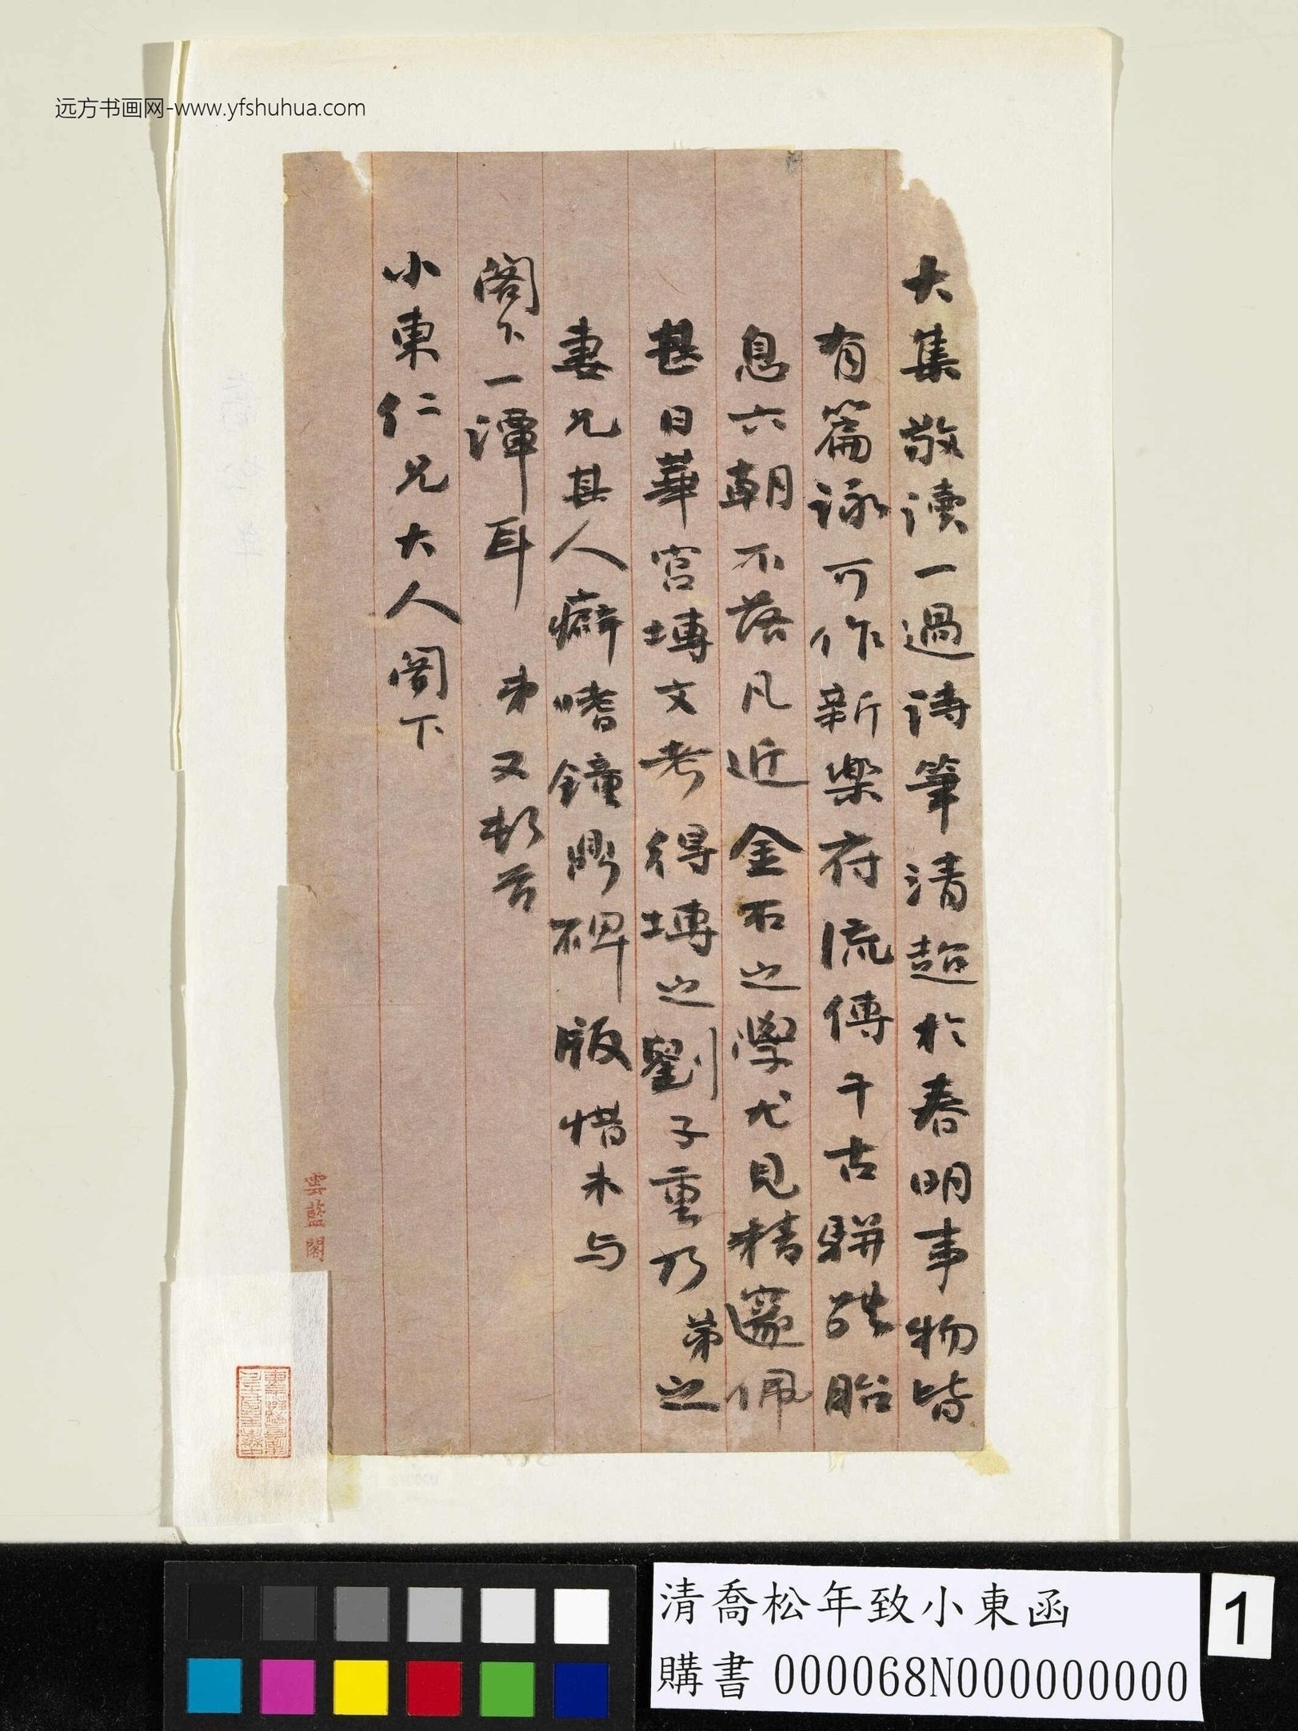 远方书画网-www.yfshuhua.com
大集敬读一過詩筆清超於春明事物皆
有篇詠可作新樂府流傳千古駢體胎
息六朝不落凡近金石之學尤見精邃佩
甚日華宮塼文考得塼之劉子重乃弟之
妻兄其人癖嗜鐘鼎碑版惜未与
閣下一潭耳 弟又頓首
小東仁兄大人閣下
雲藍閣
清喬松年致小東函
購書 000068N000000000
1